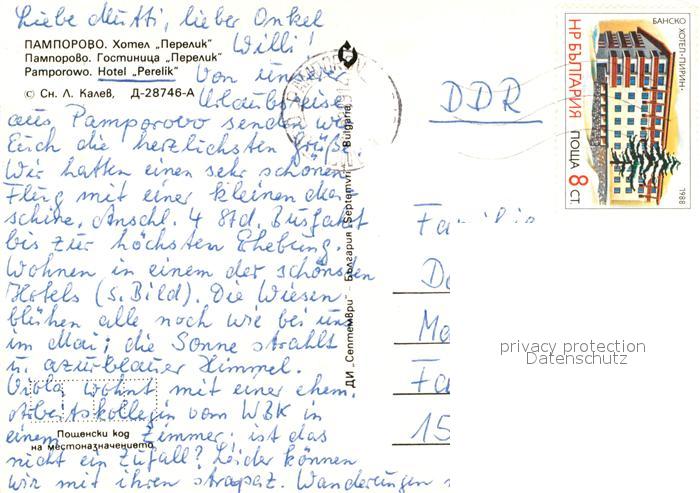 Liebe Mutti, lieber Onkel
Willi!
ПАМПОРОВО. Хотел „Перелик"
Пампорово. Гостиница „Перелик"
Pamporowo. Hotel „Perelik"
© Сн. Л. Калев, Д-28746-А
Von unserer
Urlaubsreise
aus Pamporovo senden wir
Euch die herzlichsten Grüße.
Wir hatten einen sehr schönen
Flug mit einer kleinen Ma-
schine. Anschl. 4 Std. Busfahrt
bis zur höchsten Erhebung.
Wohnen in einem der schönsten
Hotels (s. Bild). Die Wiesen
blühen alle noch wie bei uns
im Mai; die Sonne strahlt
u. azurblauer Himmel.
Viola wohnt mit einer ehem.
Arbeitskollegin vom WBK in
einem Zimmer; ist das
nicht ein Zufall? Leider können
wir mit ihren strapaz. Wanderungen
Пощенски код
на местоназначението
ДИ „Септември" - България "Septemvri" - Bulgaria
DDR
Familie
Do
Ma
Fa
15
НР БЪЛГАРИЯ ПОЩА 8 СТ.
БАНСКО ХОТЕЛ-„ПИРИН"
1988
privacy protection
Datenschutz